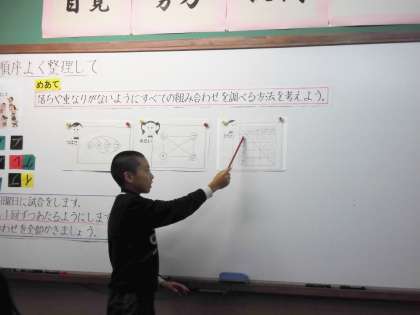 自覚 努力
順序よく整理して
めあて
落ちや重なりがないようにすべての組み合わせを調べる方法を考えよう。
曜日に試合をします。
1回ずつあたるようにします
わせを全部かきましょう。